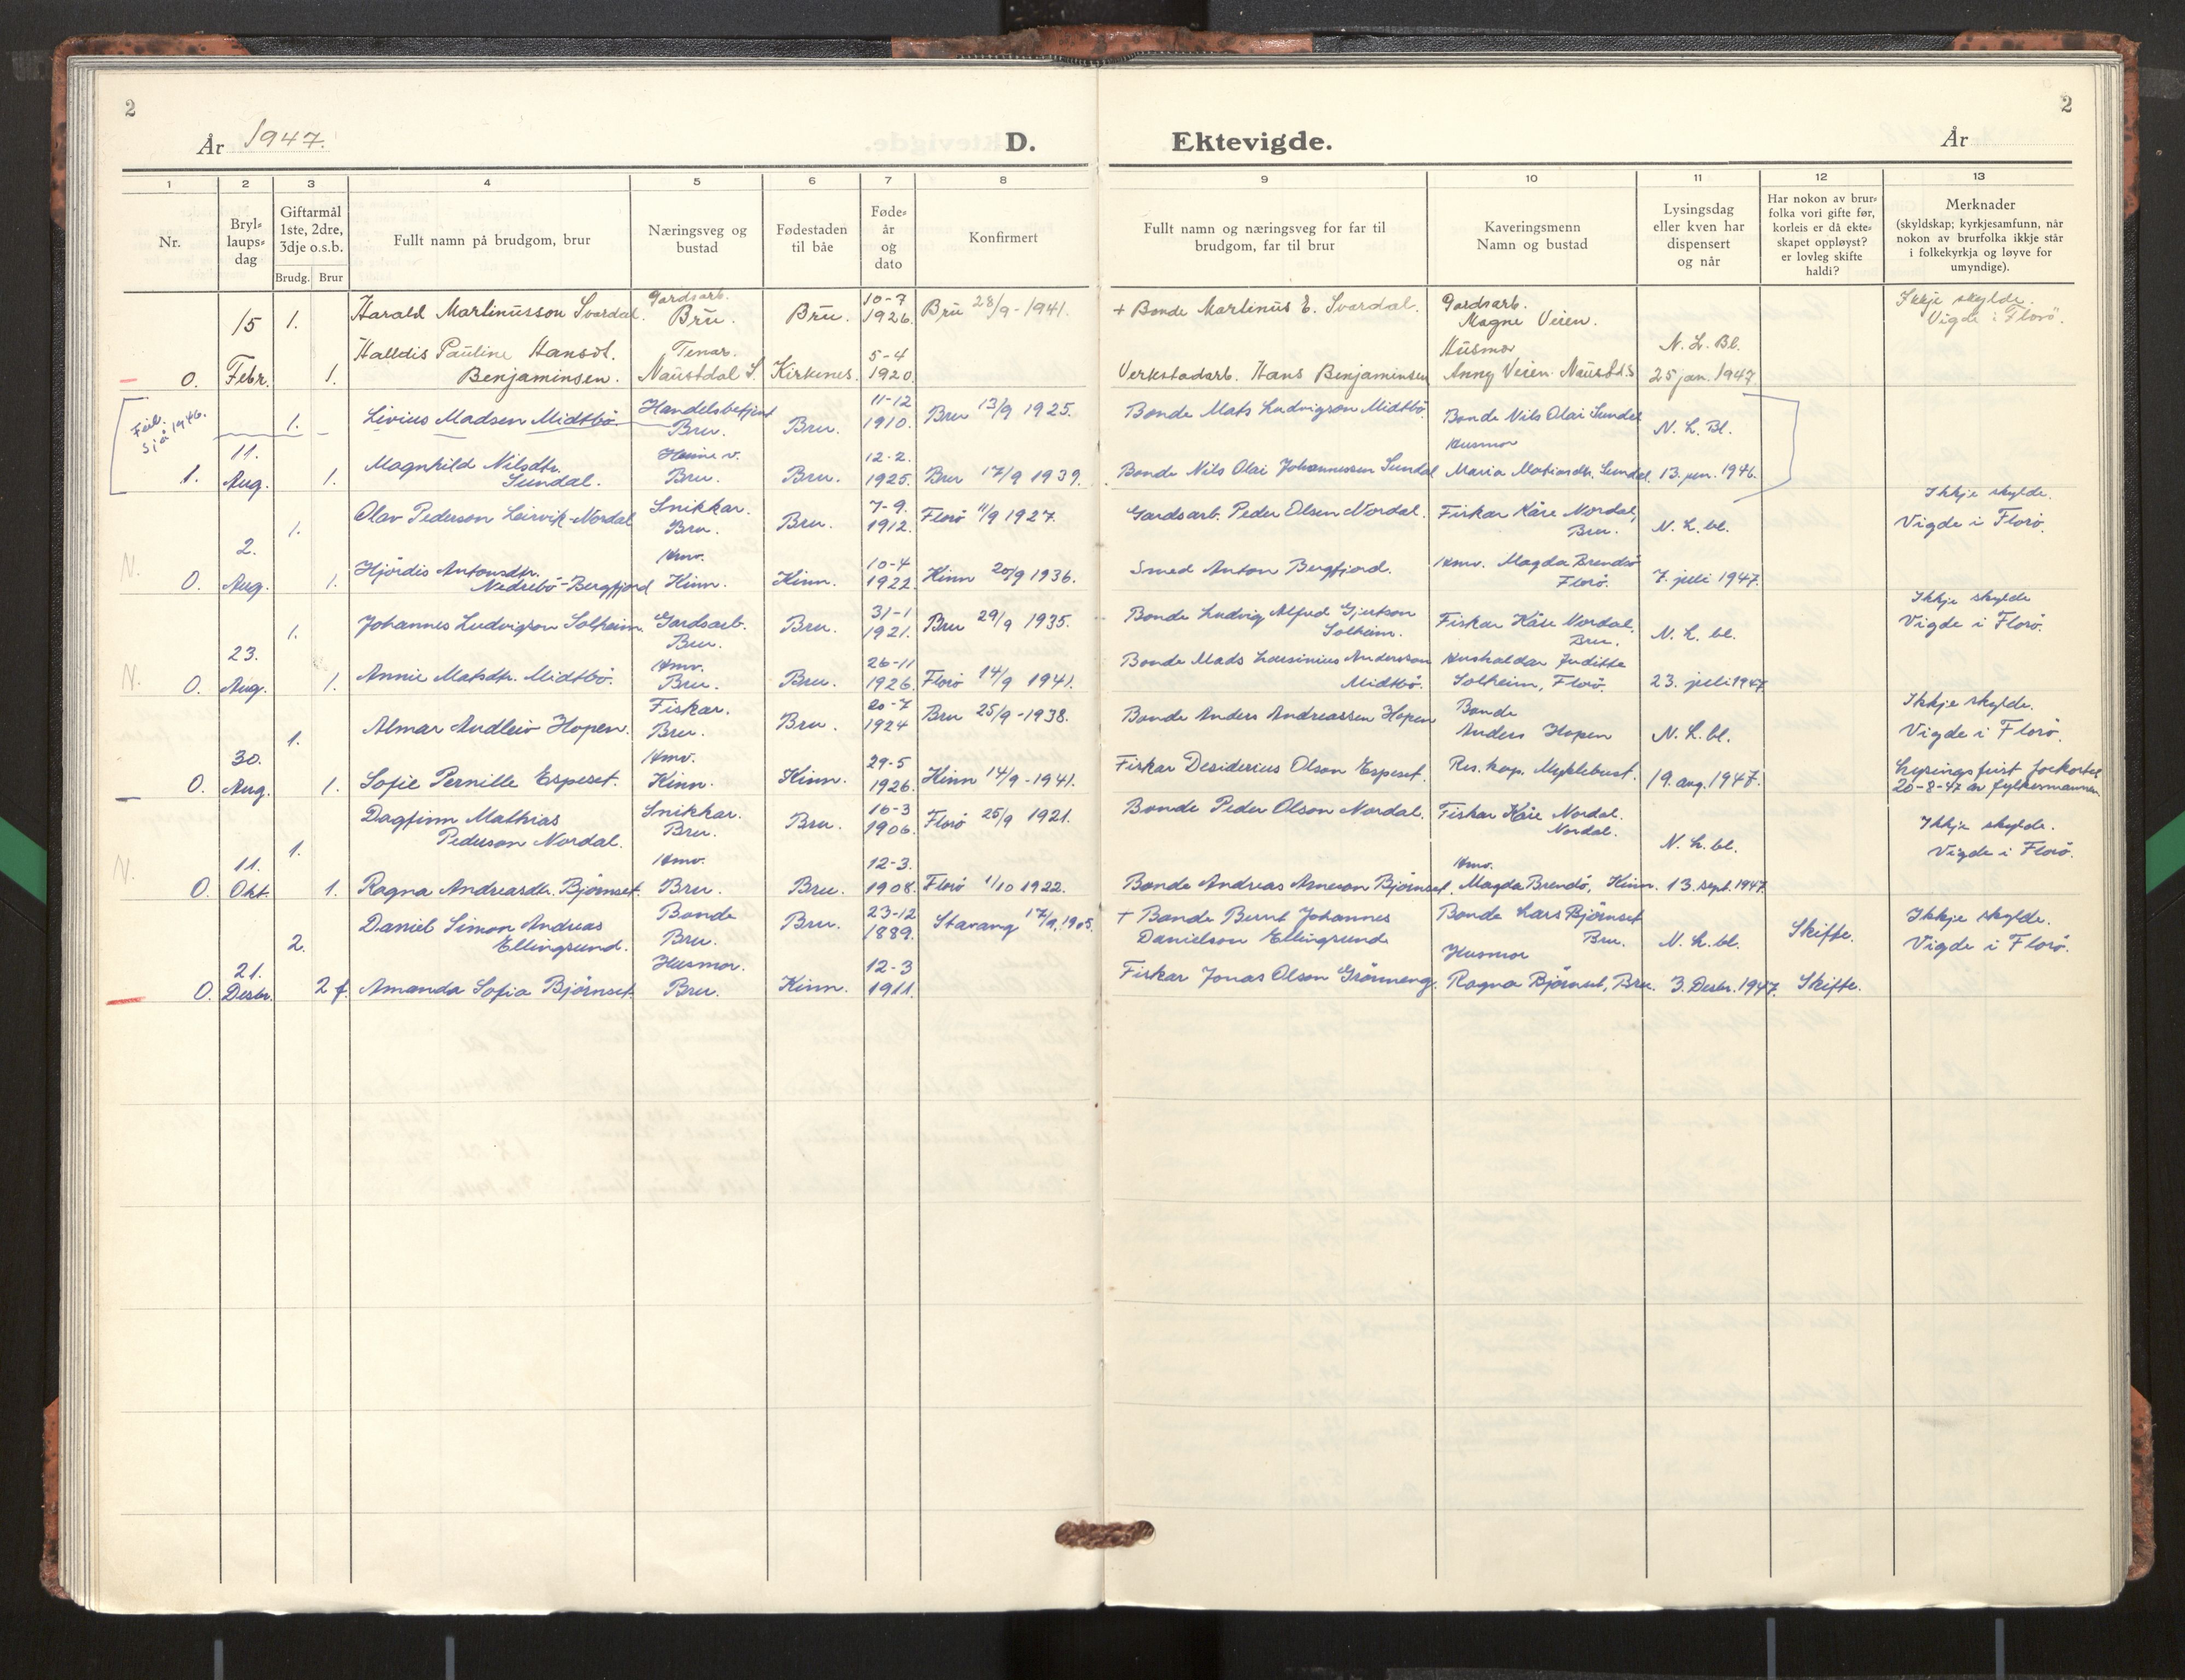 2
2
År 1947.
D. Ektevigde.
År
1 2 3 4 5 6 7 8 9 10 11 12 13
Nr.
Bryl-
laups-
dag
Giftarmål
1ste, 2dre,
3dje o.s.b.
Brudg. Brur
Fullt namn på brudgom, brur
Næringsveg og
bustad
Fødestaden
til båe
Føde-
år
og
dato
Konfirmert
Fullt namn og næringsveg for far til
brudgom, far til brur
Kaveringsmenn
Namn og bustad
Lysingsdag
eller kven har
dispensert
og når
Har nokon av brur-
folka vori gifte før,
korleis er då ekte-
skapet oppløyst?
er lovleg skifte
haldi?
Merknader
(skyldskap; kyrkjesamfunn, når
nokon av brurfolka ikkje står
i folkekyrkja og løyve for
umyndige).
15 1. Harald Martinusson Svardal. Gardsarb. Bru. Bru. 10-7 1926. Bru 28/9-1941. + Bonde Martinus E. Svardal. Gardsarb. Magne Veien. Ikkje skylde. Vigde i Florö.
0. Febr. 1. Halldis Pauline Hansdt. Benjaminsen. Tenar. Naustdal S. Kirkenes. 5-4 1920. Verkstadarb. Hans Benjaminsen Husmor Anny Veien Naustd.S N. L. Bl. 25 jan. 1947
Feil. Sjå 1946.
1. Livius Madsen Midtbö. Handelsbetjent Bru. Bru. 11-12 1910. Bru 13/9 1925. Bonde Mats Ludvigson Midtbö. Bonde Nils Olai Sundal N. L. Bl.
1. 11. Aug. 1. Magnhild Nilsdtr. Sundal. Heime v. Bru. Bru. 12-2. 1925. Bru 17/9 1939. Bonde Nils Olai Johannessen Sundal Husmor Maria Matiasdtr. Sundal. 13. jun. 1946.
1. Olav Pederson Leirvik-Nordal Snikkar. Bru. Bru. 7-9. 1912. Florö 11/9 1927. Gardsarb. Peder Olsen Nordal. Fiskar Kåre Nordal, Bru. N. L. bl. Ikkje skylde. Vigde i Florö.
N. 0. 2. Aug. 1. Hjördis Antonsdtr. Nedrebö-Bergfjord Hmv. Kinn. Kinn. 10-4 1922. Kinn 20/9 1936. Smed Anton Bergfjord. Hmv. Magda Brendsö Florö. 7. juli 1947.
1. Johannes Ludvigson Solheim. Gardsarb. Bru. Bru. 31-1 1921. Bru 29/9 1935. Bonde Ludvig Alfred Gjertson Solheim. Fiskar Kåre Nordal, Bru. N. L. bl. Ikkje skylde Vigde i Florö.
N. 0. 23. Aug. 1. Annie Matsdtr. Midtbö. Hmv. Bru. Bru. 26-11 1926. Florö 14/9 1941. Bonde Mads Andersson Midtbö. Hushaldar Juditta Solheim, Florö. 23. juli 1947
1. Almar Audleiv Hopen. Fiskar. Bru. Bru. 20-7 1924 Bru 25/9-1938. Bonde Anders Andreassen Hopen Bonde Anders Hopen N. L. bl. Ikkje skylde. Vigde i Florö.
0. 30. Aug. 1. Sofie Pernille Espeset. Hmv. Kinn. Kinn. 29-5 1926. Kinn 14/9-1941. Fiskar Desiderius Olson Espeset. Res. kap. Myklebust. 19. aug. 1947. Lysingsfrist forkortet 20-8-47 av fylkesmannen
1. Dagfinn Mathias Pederson Nordal. Snikkar. Bru. Bru. 16-3 1906. Florö 25/9 1921. Bonde Peder Olson Nordal. Fiskar Kåre Nordal. Nordal. N. L. bl. Ikkje skylde. Vigde i Florö.
N. 0. 11. Okt. 1. Ragna Andreasdtr. Björnset. Hmv. Bru. Bru. 12-3. 1908. Florö 1/10 1922. Bonde Andreas Arneson Björnset. Hmv. Magda Brendö, Kinn. 13. sept. 1947.
2. Daniel Simon Andreas Ellingsund. Bonde Bru. Bru. 23-12 1889. Stavang 17/9. 1905. + Bonde Bernt Johannes Danielson Ellingsund Bonde Lars Björnset Bru. N. L. bl. Skifte. Ikkje skylde. Vigde i Florö.
0. 21. Desbr. 2 f. Amanda Sofia Björnset. Husmor. Bru. Kinn. 12-3 1911. Fiskar Jonas Olson Grönneng. Husmor Ragna Björnset, Bru. 3. Desbr. 1947. Skifte.